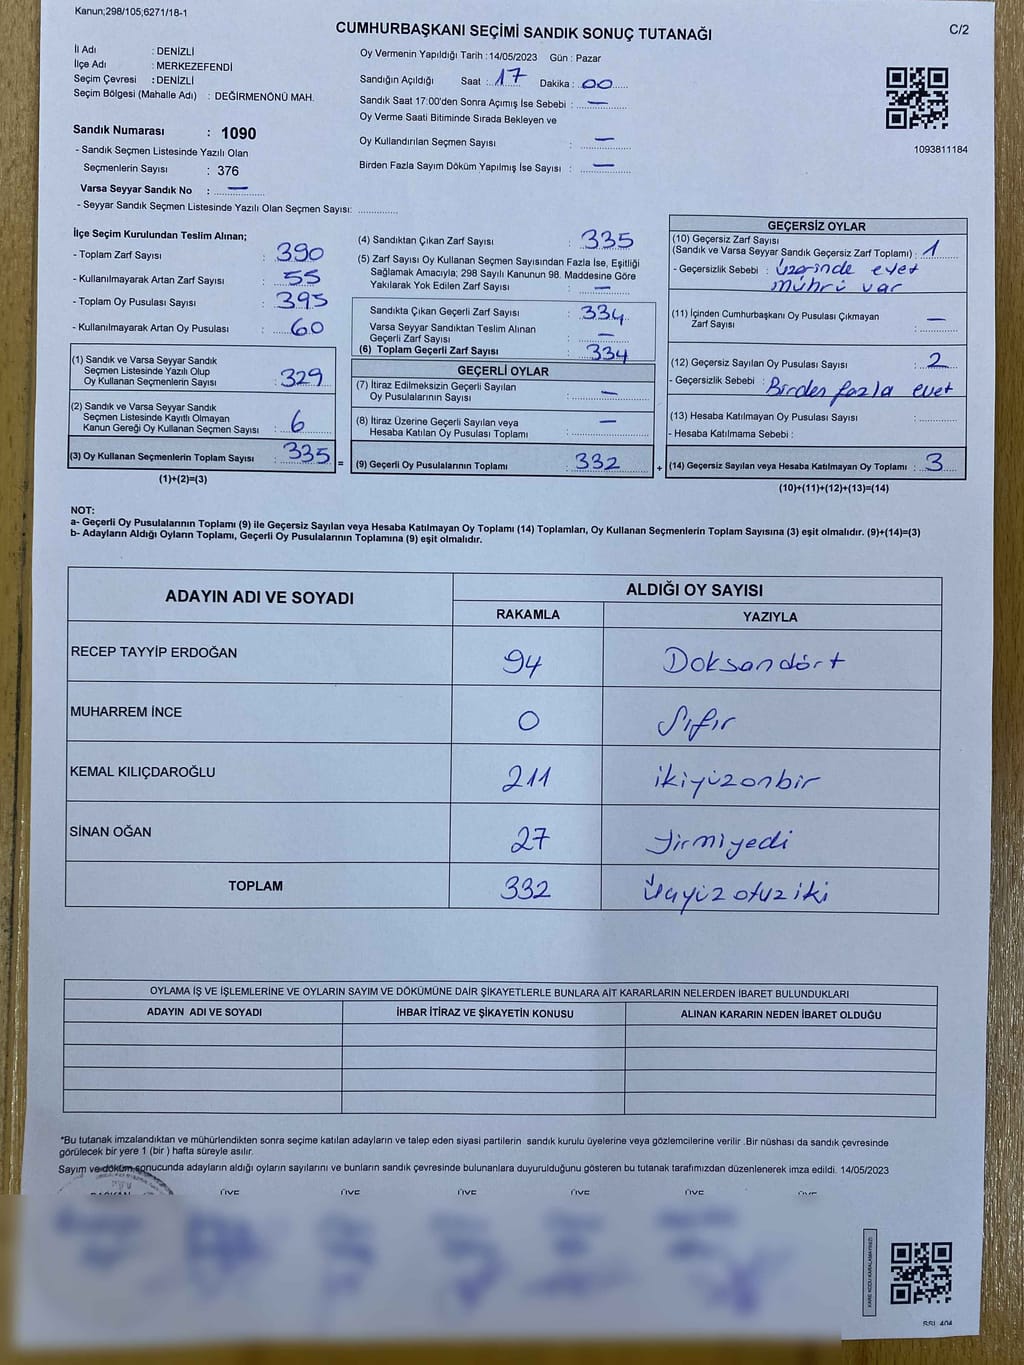 Kanun;298/105;6271/18-1
CUMHURBAŞKANI SEÇİMİ SANDIK SONUÇ TUTANAĞI
C/2
İl Adı : DENİZLİ
İlçe Adı : MERKEZEFENDİ
Seçim Çevresi : DENİZLİ
Seçim Bölgesi (Mahalle Adı) : DEĞİRMENÖNÜ MAH.
Sandık Numarası : 1090
- Sandık Seçmen Listesinde Yazılı Olan
Seçmenlerin Sayısı : 376
Varsa Seyyar Sandık No : —
- Seyyar Sandık Seçmen Listesinde Yazılı Olan Seçmen Sayısı: ..............
Oy Vermenin Yapıldığı Tarih :14/05/2023 Gün : Pazar
Sandığın Açıldığı Saat : 17 Dakika : 00
Sandık Saat 17:00'den Sonra Açımış İse Sebebi : —
Oy Verme Saati Bitiminde Sırada Bekleyen ve
Oy Kullandırılan Seçmen Sayısı : —
Birden Fazla Sayım Döküm Yapılmış İse Sayısı : —
1093811184
İlçe Seçim Kurulundan Teslim Alınan;
- Toplam Zarf Sayısı : 390
- Kullanılmayarak Artan Zarf Sayısı : 55
- Toplam Oy Pusulası Sayısı : 395
- Kullanılmayarak Artan Oy Pusulası : 60
(1) Sandık ve Varsa Seyyar Sandık
Seçmen Listesinde Yazılı Olup
Oy Kullanan Seçmenlerin Sayısı : 329
(2) Sandık ve Varsa Seyyar Sandık
Seçmen Listesinde Kayıtlı Olmayan
Kanun Gereği Oy Kullanan Seçmen Sayısı : 6
(3) Oy Kullanan Seçmenlerin Toplam Sayısı : 335 =
(1)+(2)=(3)
(4) Sandıktan Çıkan Zarf Sayısı : 335
(5) Zarf Sayısı Oy Kullanan Seçmen Sayısından Fazla İse, Eşitliği
Sağlamak Amacıyla; 298 Sayılı Kanunun 98. Maddesine Göre
Yakılarak Yok Edilen Zarf Sayısı : —
Sandıkta Çıkan Geçerli Zarf Sayısı : 334
Varsa Seyyar Sandıktan Teslim Alınan
Geçerli Zarf Sayısı : —
(6) Toplam Geçerli Zarf Sayısı : 334
GEÇERLİ OYLAR
(7) İtiraz Edilmeksizin Geçerli Sayılan
Oy Pusulalarının Sayısı : —
(8) İtiraz Üzerine Geçerli Sayılan veya
Hesaba Katılan Oy Pusulası Toplamı : —
(9) Geçerli Oy Pusulalarının Toplamı : 332 +
GEÇERSİZ OYLAR
(10) Geçersiz Zarf Sayısı
(Sandık ve Varsa Seyyar Sandık Geçersiz Zarf Toplamı) : 1
- Geçersizlik Sebebi : Üzerinde evet
mührü var
(11) İçinden Cumhurbaşkanı Oy Pusulası Çıkmayan
Zarf Sayısı : —
(12) Geçersiz Sayılan Oy Pusulası Sayısı : 2
- Geçersizlik Sebebi : Birden fazla evet
(13) Hesaba Katılmayan Oy Pusulası Sayısı :
- Hesaba Katılmama Sebebi :
(14) Geçersiz Sayılan veya Hesaba Katılmayan Oy Toplamı : 3
(10)+(11)+(12)+(13)=(14)
NOT:
a- Geçerli Oy Pusulalarının Toplamı (9) ile Geçersiz Sayılan veya Hesaba Katılmayan Oy Toplamı (14) Toplamları, Oy Kullanan Seçmenlerin Toplam Sayısına (3) eşit olmalıdır. (9)+(14)=(3)
b- Adayların Aldığı Oyların Toplamı, Geçerli Oy Pusulalarının Toplamına (9) eşit olmalıdır.
ADAYIN ADI VE SOYADI
ALDIĞI OY SAYISI
RAKAMLA YAZIYLA
RECEP TAYYİP ERDOĞAN 94 Doksandört
MUHARREM İNCE 0 Sıfır
KEMAL KILIÇDAROĞLU 211 ikiyüzonbir
SİNAN OĞAN 27 Yirmiyedi
TOPLAM 332 Üçyüz otuz iki
OYLAMA İŞ VE İŞLEMLERİNE VE OYLARIN SAYIM VE DÖKÜMÜNE DAİR ŞİKAYETLERLE BUNLARA AİT KARARLARIN NELERDEN İBARET BULUNDUKLARI
ADAYIN ADI VE SOYADI İHBAR İTİRAZ VE ŞİKAYETİN KONUSU ALINAN KARARIN NEDEN İBARET OLDUĞU
*Bu tutanak imzalandıktan ve mühürlendikten sonra seçime katılan adayların ve talep eden siyasi partilerin sandık kurulu üyelerine veya gözlemcilerine verilir .Bir nüshası da sandık çevresinde
görülecek bir yere 1 (bir ) hafta süreyle asılır.
Sayım ve döküm sonucunda adayların aldığı oyların sayılarını ve bunların sandık çevresinde bulunanlara duyurulduğunu gösteren bu tutanak tarafımızdan düzenlenerek imza edildi. 14/05/2023
BAŞKAN ÜYE ÜYE ÜYE ÜYE ÜYE ÜYE